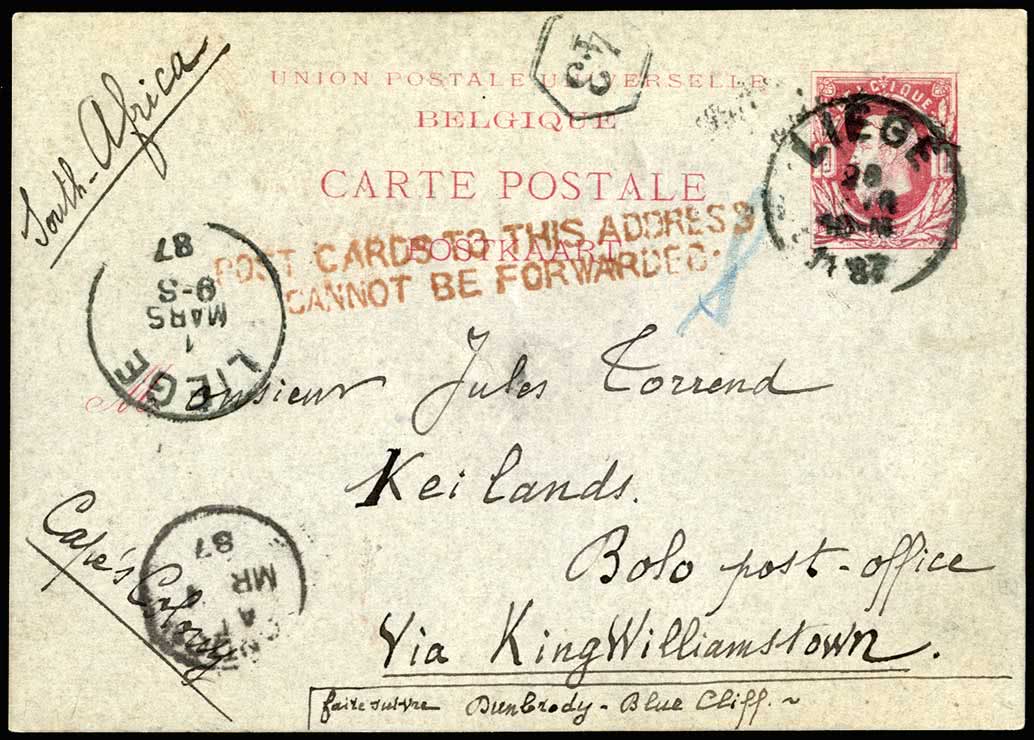 43
UNION POSTALE UNIVERSELLE
BELGIQUE
CARTE POSTALE
POSTKAART
LIÉGE
South-Africa
POST CARDS TO THIS ADDRESS
CANNOT BE FORWARDED.
LIÉGE
1
MARS
9-S
87
Monsieur Jules Torrend
Keilands.
Bolo post-office
Via KingWilliamstown.
Cape's Colony
MR
87
faire suivre Dunbrody - Blue Cliff. ~